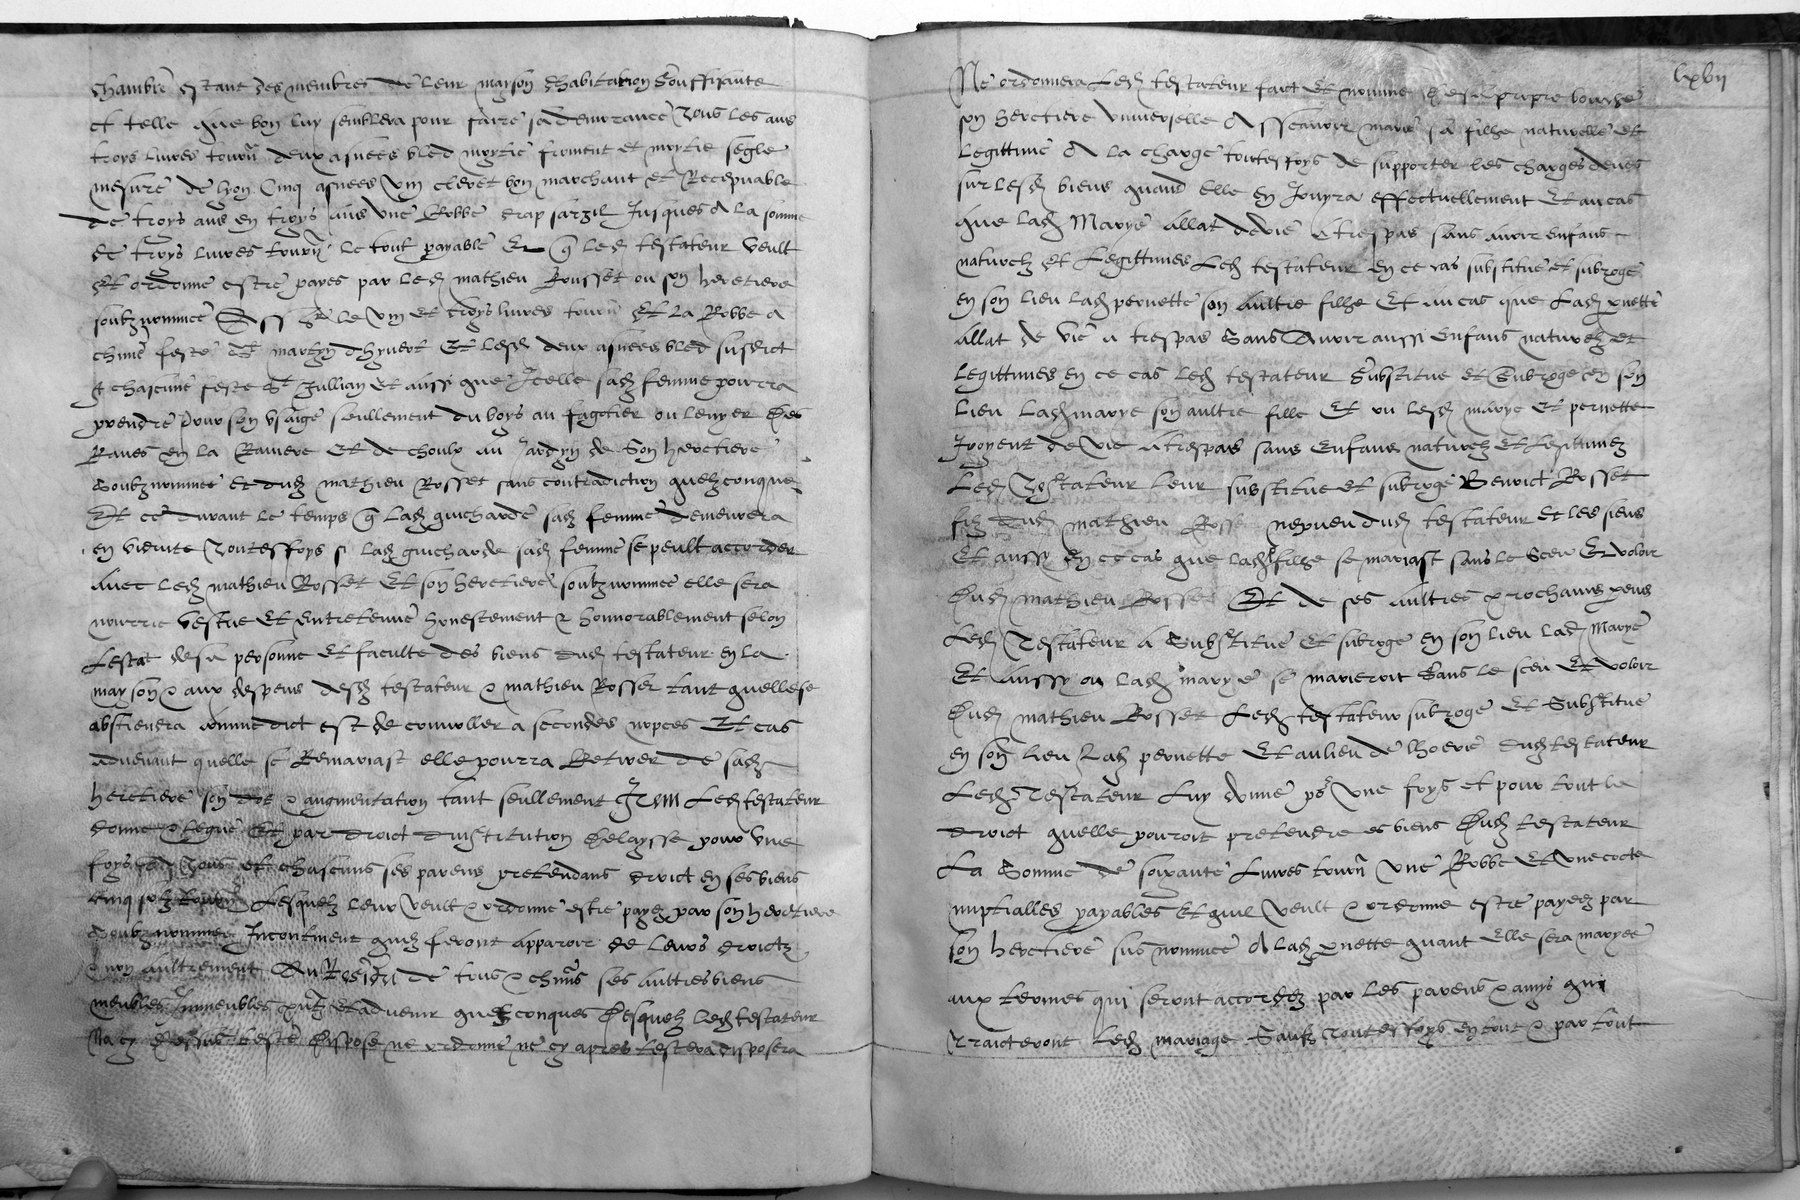 chambre estant des membres de leur mayson dhabitation souffizante
et telle que bon luy semblera pour faire sa demeurance Tous les ans
troys livres tourn deux asnees bled moytie froment et moytie segle
mesure de lyon Cinq asnees vin cleret bon marchant et Recepvable
de troys ans en troys ans une Robbe drap sarzil Jusques a la somme
de troys livres tourn le tout payable Et q led testateur veult
et ordonne estre payes par led mathieu Rousset ou son heretiere
soubznommee le vin et troys livres tourn Et la Robbe a
feste St martyn dhyvert Et lesd deux asnees bled susdict
a chascune feste St Jullian Et aussi que Icelle sad femme pourra
prendre pour son usaige seullement du boys au fagotier ou lever des
Raves en la Raviere Et de choulx au Jardyn de son heretiere
soubznommee et dud mathieu Rosset sans contradiction quelzconque
Et ce durant le temps q lad guicharde sad femme demeurera
en viduite Toutesfoys si lad guicharde sad femme se peult accorder
avec led mathieu Rosset Et son heretiere soubznommee elle sera
nourrie vestue Et entretenue honestement & honnorablement selon
lestat de sa personne Et faculte des biens dud testateur en la
mayson & aux despens desd testateur & mathieu Rosset tant quelle se
abstiendra comme dict est de convoller a secondes nopces Et cas
advenant quelle se Remariast elle pourra Retirer de sad
heretiere son dot & augmentation tant seullement Item Led testateur
donne & legue Et par droict dinstitution delaysse pour une
foys Tous et chascuns ses parens pretendans droict en ses biens
cinq solz tourn Lesquelz leur veult & ordonne estre payez par son heretiere
soubznommee Incontinent quilz feront apparoir de leurs droictz
& non aultrement Au Residu de tous & ses aultres biens
meubles Immeubles Et advenir quelzconques Desquelz led testateur
Na cy dessus teste dispose ne ordonne ne cy apres testera disposera
lxvii
Ne ordonnera Led testateur faict Et nomme de sa propre bouche
son heretiere universelle A scavoir marie sa filhe naturelle et
legittime A la charge toutesfoys de supporter les charges deues
sur lesd biens quand elle en Jouyra effectuellement Et au cas
que lad Marye allat de vie a trespas sans avoir enfans
naturelz et Legittimes Led testateur en ce cas substitue et subroge
en son lieu lad pernette son aultre filhe Et au cas que Lad pnette
allat de vie a trespas Sans Avoir aussi enfans naturelz et
Legittimes en ce cas led testateur Substitue et Subroge en son
lieu Lad marye son aultre fille Et ou lesd marye et pernette
Iroyent de vie a trespas sans enfans naturelz Et legittimez
Led Testateur leur substitue et subroge Benoict Rosset
filz dud mathieu Rosset nepveu dud testateur et les siens
Et aussy en ce cas que lad filhe se mariast sans le sceu Et voloir
Dud mathieu Rosset Et de ses aultres prochains pens
Led Testateur a Substitue Et subroge en son lieu lad Marye
Et aussy ou lad marye se marieroit Sans le sceu Et voloir
Dud mathieu Rosset Led testateur subroge Et Substitue
en son lieu Lad pernette Et au lieu de lhoerie dud testateur
Led Testateur luy donne po une foys et pour tout le
droict quelle pouroit pretendre es biens Dud testateur
La Somme de soixante Livres tourn une Robbe Et une cotte
nuptialles payables Et quil veult & ordonne estre payez par
son heretiere sus nommee A lad pnette quant elle sera maryee
aux termes qui seront accordez par les parens & amys qui
Traicteront Led mariage Saufz Toutesfoys en tout & par tout